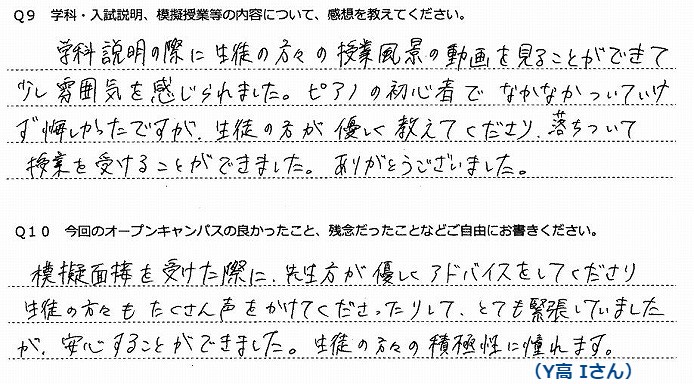 Q9 学科・入試説明、模擬授業等の内容について、感想を教えてください。
学科説明の際に生徒の方々の授業風景の動画を見ることができて
少し雰囲気を感じられました。ピアノの初心者でなかなかついていけ
ず悔しかったですが、生徒の方が優しく教えてくださり、落ちついて
授業を受けることができました。ありがとうございました。
Q10 今回のオープンキャンパスの良かったこと、残念だったことなどご自由にお書きください。
模擬面接を受けた際に、先生方が優しくアドバイスをしてくださり
生徒の方々もたくさん声をかけてくださったりして、とても緊張していました
が、安心することができました。生徒の方々の積極性に憧れます。
（Y高 Iさん）